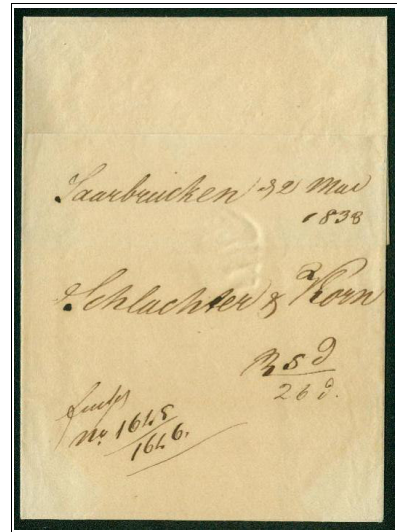 Saarbrucken d 2 Mai
1838
Schlachter & Korn
R 5 d
26 d.
No 1645
1646.